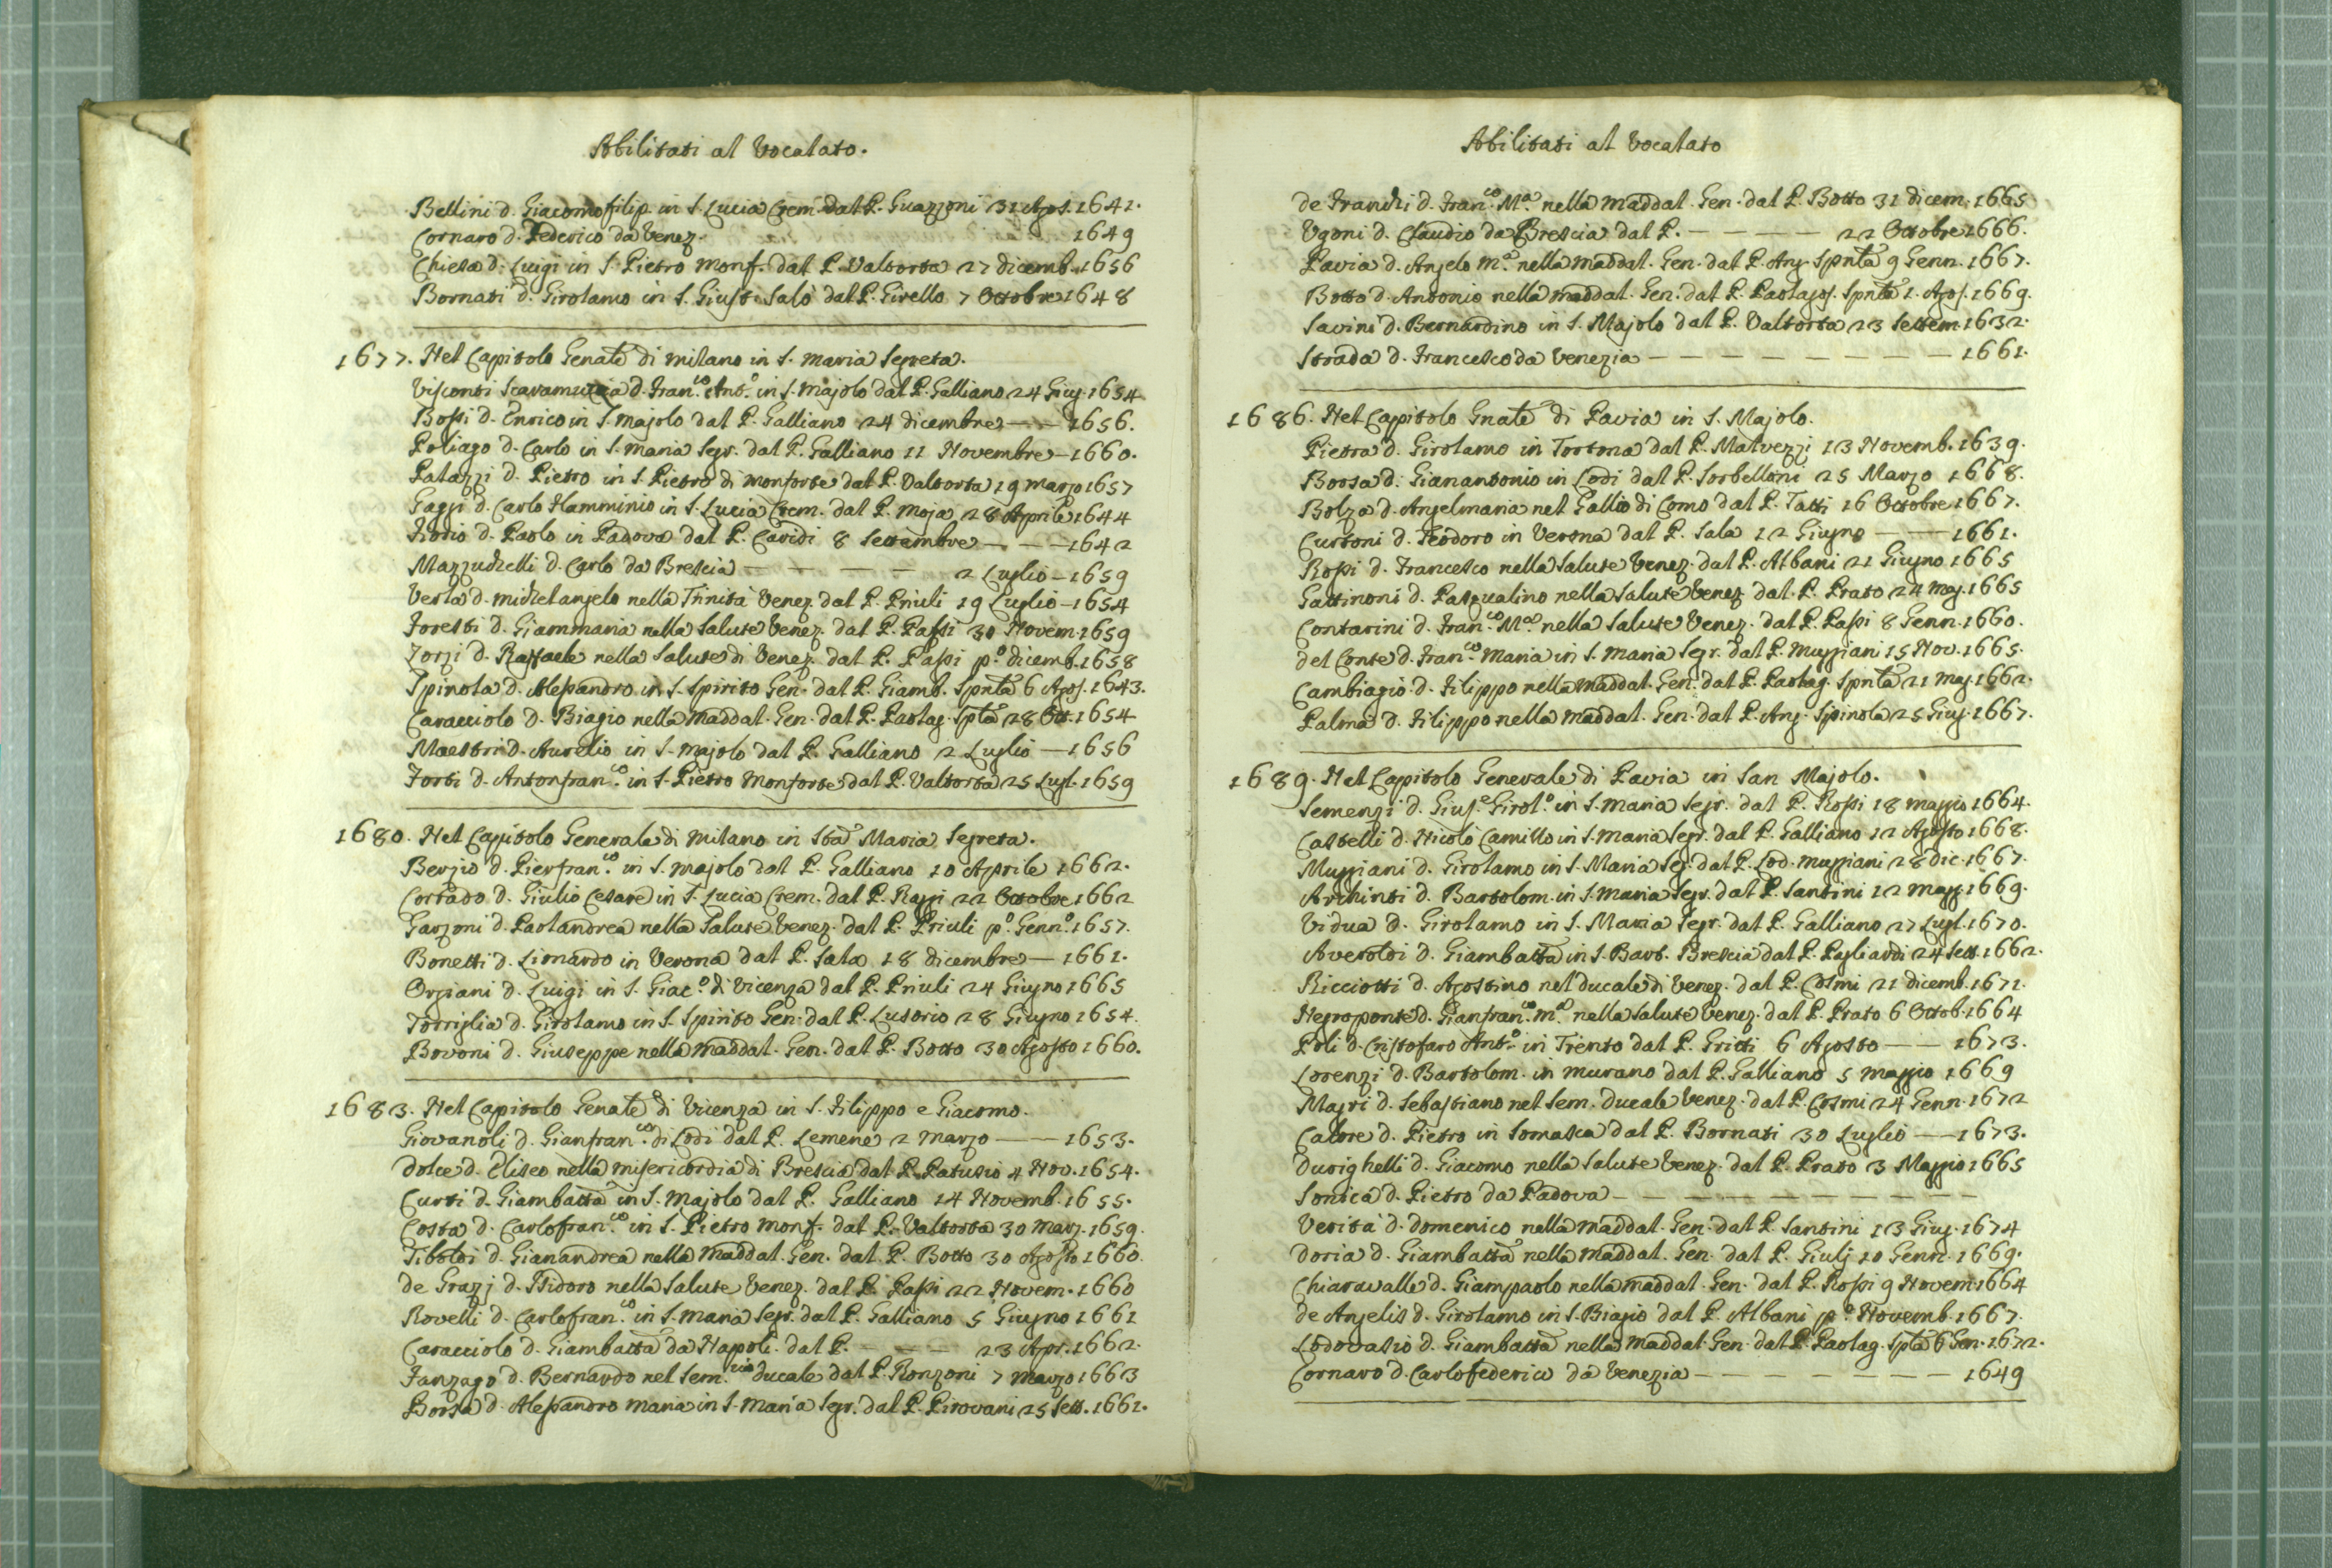 Abilitati al Vocalato.
Bellini d. Giacomofilip. in S. Lucia Crem. dal P. Guazzoni 31 Agos. 1641.
Cornaro d. Federico da Venez. 1649
Chiesa d. Luigi in S. Pietro Monf. dal P. Valtorta 27 dicemb. 1656
Bornati d. Girolamo in S. Giusti. Salò dal P. Girello 7 Ottobre 1648
1677. Nel Capitolo Genale di Milano in S. Maria Segreta.
Visconti Scaramuccia d. Fran.co Ant.o in S. Majolo dal P. Galliano 24 Giug. 1654
Bossi d. Enrico in S. Majolo dal P. Galliano 24 dicembre — — 1656.
Poliago d. Carlo in S. Maria Segr. dal P. Galliano 11 Novembre — 1660.
Palazzi d. Pietro in S. Pietro di Monforte dal P. Valtorta 19 Marzo 1657
Gaggi d. Carlo Flamminio in S. Lucia Crem. dal P. Moja 28 Aprile 1644
Rodio d. Paolo in Padova dal P. Caridi 8 Settembre — — — 1642
Mazzuchelli d. Carlo da Brescia — — — — 2 Luglio — 1659
Verla d. Michelangelo nella Trinità Venez. dal P. Priuli 19 Luglio — 1654
Foresti d. Giammaria nella Salute Venez. dal P. Passi 30 Novem. 1659
Zorzi d. Raffaele nella Salute di Venez. dal P. Passi p.o dicemb. 1658
Spinola d. Alessandro in S. Spirito Gen. dal P. Giamb. Spnla 6 Agos. 1643.
Caracciolo d. Biagio nella Maddal. Gen. dal P. Paolag. Spla 28 Ott. 1654
Maestri d. Aurelio in S. Majolo dal P. Galliano 2 Luglio — 1656
Forti d. Antonfran.co in S. Pietro Monforte dal P. Valtorta 25 Lugl. 1659
1680. Nel Capitolo Generale di Milano in Sta Maria Segreta.
Bergio d. Pierfran.co in S. Majolo dal P. Galliano 10 Aprile 1662.
Corrado d. Giulio Cesare in S. Lucia Crem. dal P. Raggi 22 Ottobre 1662
Garzoni d. Paolandrea nella Salute Venez. dal P. Priuli p.o Genn.o 1657.
Bonetti d. Lionardo in Verona dal P. Sala 18 dicembre — 1661.
Orgiani d. Luigi in S. Giac.o di Vicenza dal P. Priuli 24 Giugno 1665
Torriglia d. Girolamo in S. Spirito Gen. dal P. Lusorio 28 Giugno 1654.
Bovoni d. Giuseppe nella Maddal. Gen. dal P. Botto 30 Agosto 1660.
1683. Nel Capitolo Genale di Vicenza in S. Filippo e Giacomo.
Giovanoli d. Gianfran.co di Lodi dal P. Lemene 2 Marzo — — 1653.
Dolce d. Eliseo nella Misericordia di Brescia dal P. Patusio 4 Nov. 1654.
Curti d. Giambatta in S. Majolo dal P. Galliano 14 Novemb. 1655.
Costa d. Carlofran.co in S. Pietro Monf. dal P. Valtorta 30 Marz. 1659.
Tiboldi d. Gianandrea nella Maddal. Gen. dal P. Botto 30 Agosto 1660.
de Grazj d. Isidoro nella Salute Venez. dal P. Passi 22 Novem. 1660
Rovelli d. Carlofran.co in S. Maria Segr. dal P. Galliano 5 Giugno 1661
Caracciolo d. Giambatta da Napoli. dal P. — — — 23 Apr. 1662.
Fanzago d. Bernardo nel Sem.rio ducale dal P. Ronzoni 7 Marzo 1663
Borsa d. Alessandro Maria in S. Maria Segr. dal P. Pirovani 25 Sett. 1661.
Abilitati al Vocalato
de Franchi d. Fran.co M.a nella Maddal. Gen. dal P. Botto 31 dicem. 1665
Ugoni d. Claudio da Brescia dal P. — — — — — 22 Ottobre 1666.
Pavia d. Angelo M.a nella Maddal. Gen. dal P. Ang. Spnla 9 Genn. 1667.
Botto d. Antonio nella Maddal. Gen. dal P. Paolagos. Spnla 1. Agos. 1669.
Savini d. Bernardino in S. Majolo dal P. Valtorta 23 Settem. 1632.
Strada d. Francesco da Venezia — — — — — — — — 1661.
1686. Nel Capitolo Gnale di Pavia in S. Majolo.
Pietra d. Girolamo in Tortona dal P. Malvezzi 13 Novemb. 1639.
Borsa d. Gianantonio in Lodi dal P. Sorbelloni 25 Marzo 1668.
Bolza d. Angelmaria nel Gallio di Como dal P. Tatti 16 Ottobre 1667.
Curtoni d. Teodoro in Verona dal P. Sala 12 Giugno — — 1661.
Rossi d. Francesco nella Salute Venez. dal P. Albani 21 Giugno 1665
Gattinoni d. Pasqualino nella Salute Venez. dal P. Prato 24 Mag. 1665
Contarini d. Fran.co M.a nella Salute Venez. dal P. Passi 8 Genn. 1660.
del Conte d. Fran.co Maria in S. Maria Segr. dal P. Muggiani 15 Nov. 1665.
Cambiagio d. Filippo nella Maddal. Gen. dal P. Paolag. Spnla 21 Mag. 1662.
Palma d. Filippo nella Maddal. Gen. dal P. Ang. Spinola 25 Giug. 1667.
1689. Nel Capitolo Generale di Pavia in San Majolo.
Semenzi d. Gius.e Girol.o in S. Maria Segr. dal P. Rossi 18 Maggio 1664.
Castelli d. Nicolò Camillo in S. Maria Segr. dal P. Galliano 12 Agosto 1668.
Muggiani d. Girolamo in S. Maria Seg. dal P. Lod. Muggiani 28 dic. 1667.
Archinti d. Bartolom. in S. Maria Segr. dal P. Santini 12 Magg. 1669.
Vidua d. Girolamo in S. Maria Segr. dal P. Galliano 27 Lugl. 1670.
Averoldi d. Giambatta in S. Bart. Brescia dal P. Pagliardi 24 Sett. 1662.
Ricciotti d. Agostino nel ducale di Venez. dal P. Cosmi 21 dicemb. 1671.
Negroponte d. Gianfran.co M.a nella Salute Venez. dal P. Prato 6 Ottob. 1664
Poli d. Cristofaro Ant.o in Trento dal P. Gritti 6 Agosto — — 1673.
Lorenzi d. Bartolom. in Murano dal P. Galliano 5 Maggio 1669
Magri d. Sebastiano nel Sem. ducale Venez. dal P. Cosmi 24 Genn. 1672
Calore d. Pietro in Somasca dal P. Bornati 30 Luglio — — 1673.
Durighelli d. Giacomo nella Salute Venez. dal P. Prato 3 Maggio 1665
Sonica d. Pietro da Padova — — — — — — — — —
Verità d. Domenico nella Maddal. Gen. dal P. Santini 13 Giug. 1674
Doria d. Giambatta nella Maddal. Gen. dal P. Giulj 10 Genn. 1669.
Chiaravalle d. Giampaolo nella Maddal. Gen. dal P. Rossi 9 Novem. 1664
de Angelis d. Girolamo in S. Biagio dal P. Albani p.o Novemb. 1667.
Lodovasio d. Giambatta nella Maddal. Gen. dal P. Paolag. Spla 6 Gen. 1672.
Cornaro d. Carlofederico da Venezia — — — — — — — 1649